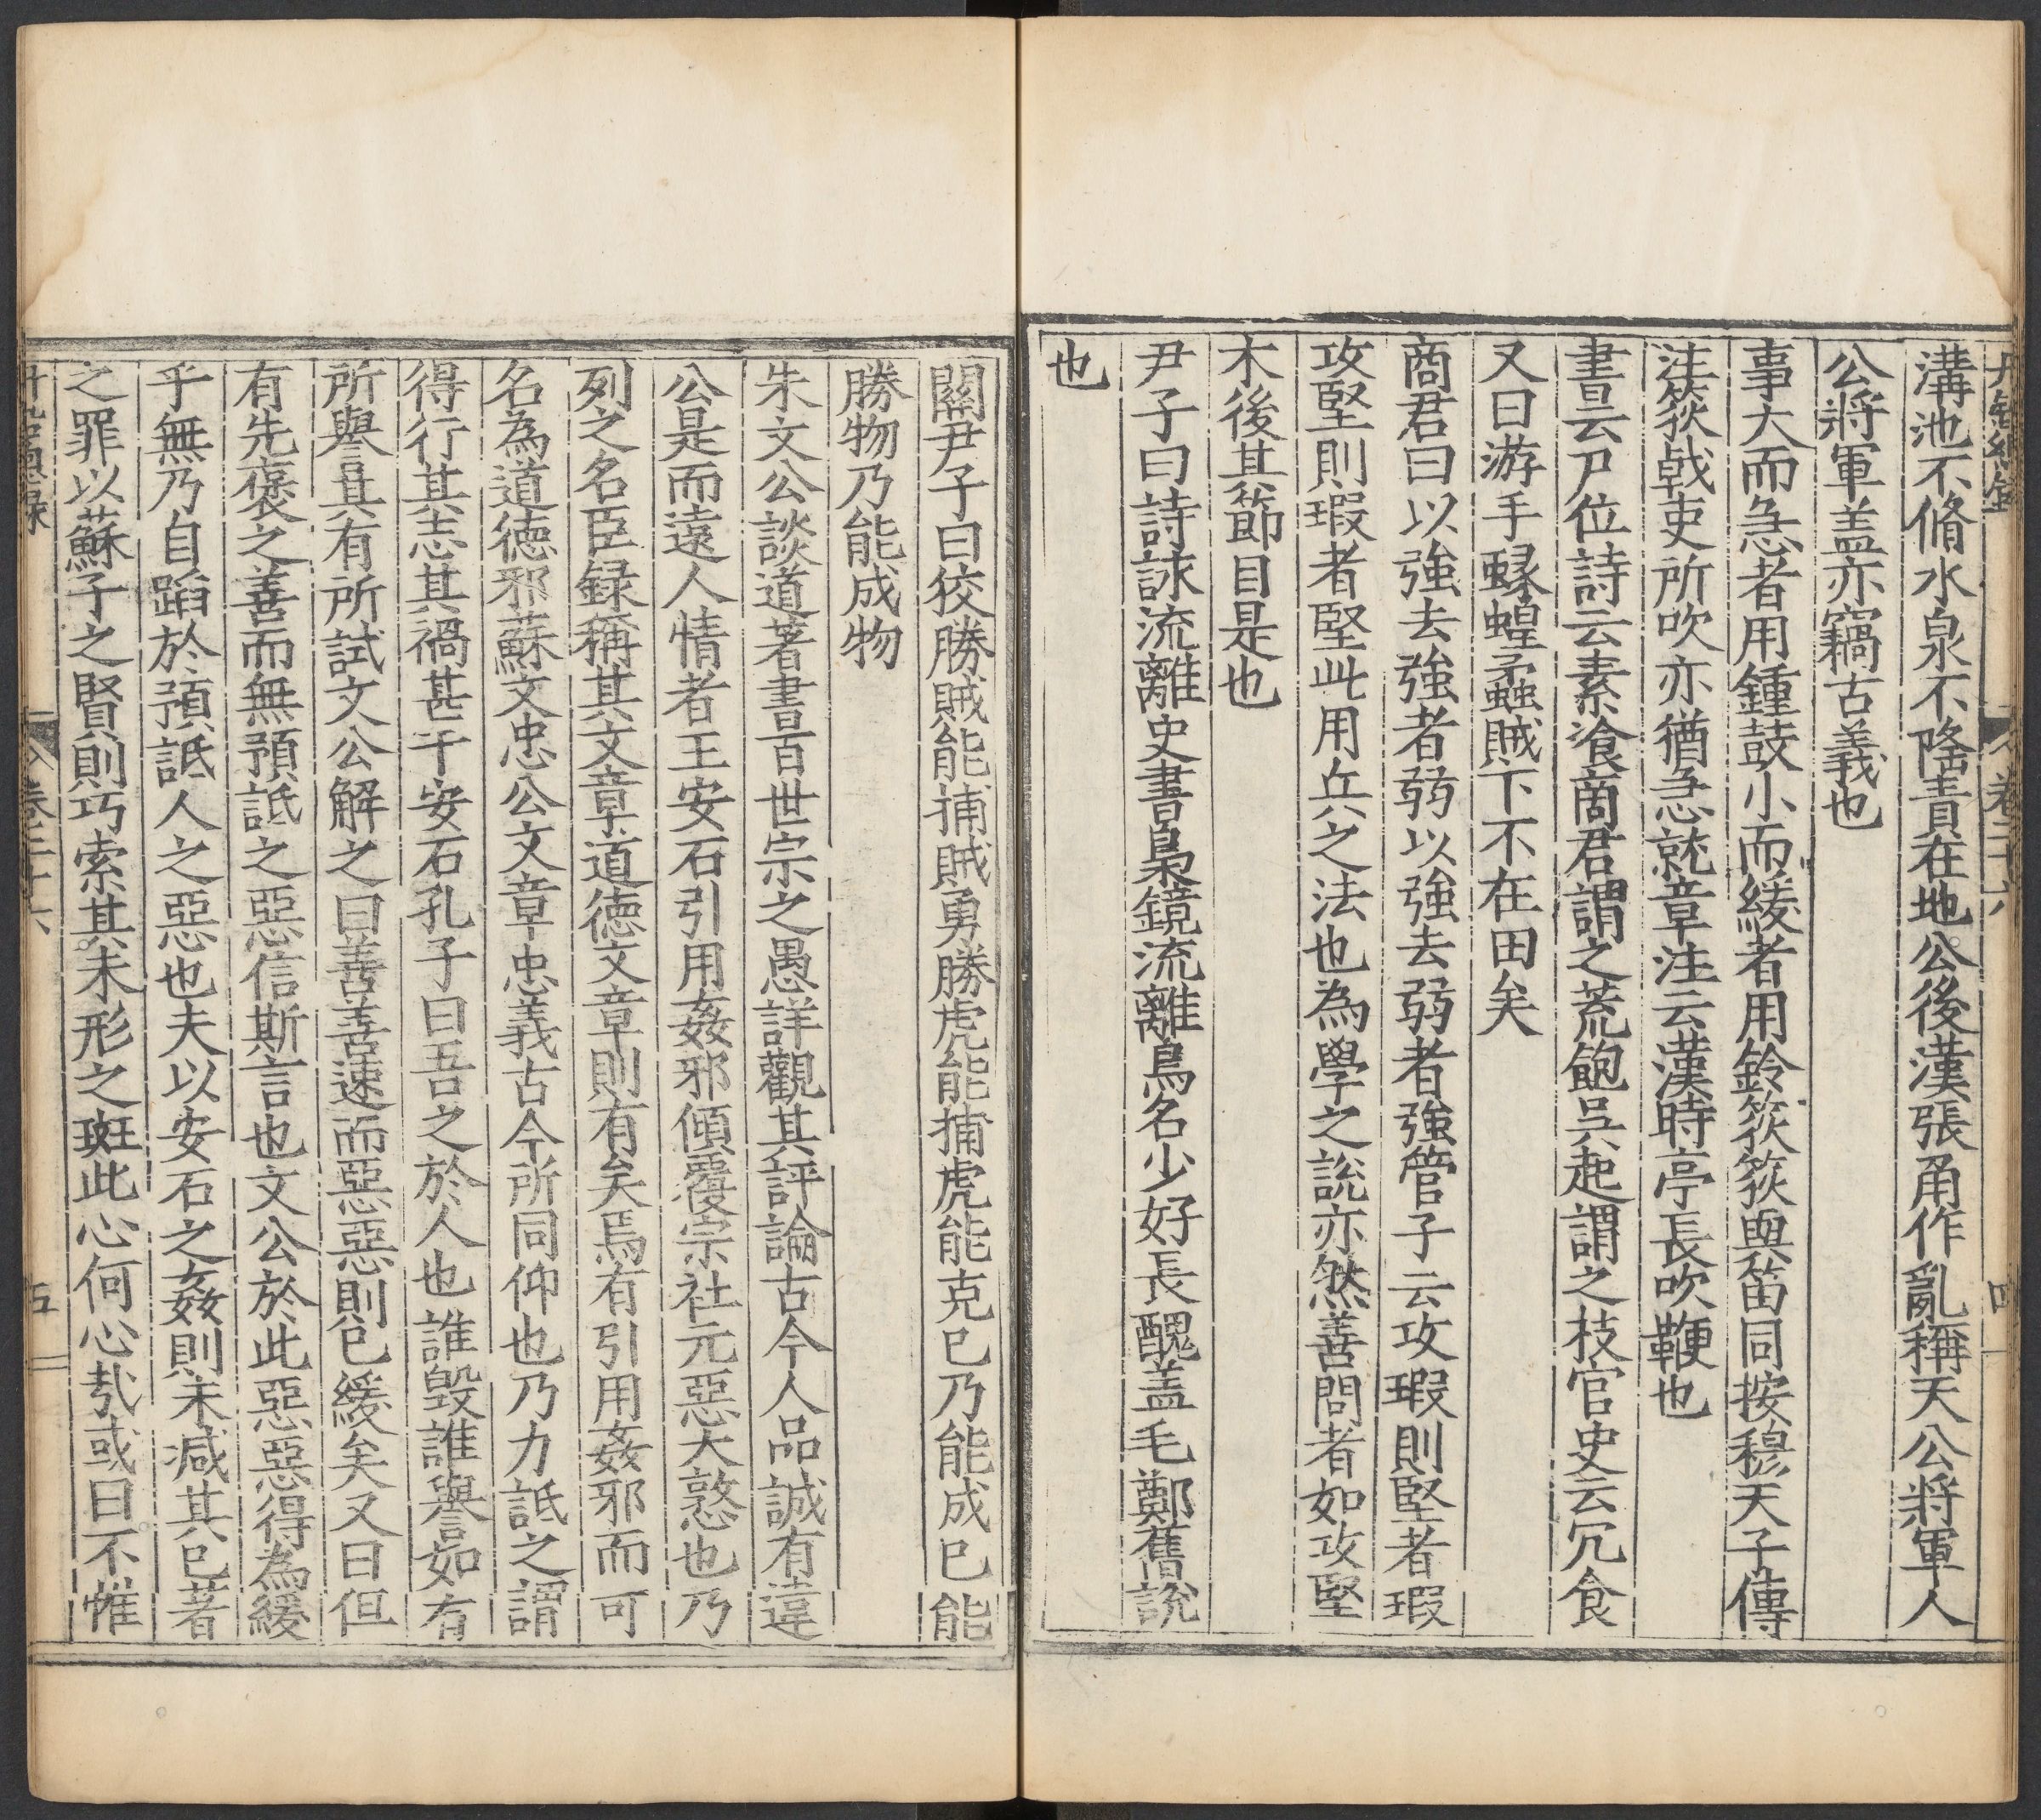 溝池不脩水泉不隆責在地公後漢張角作亂稱天公將軍人
公將軍盖亦竊古義也
事大而急者用鍾鼓小而緩者用鈴篍篍與笛同按穆天子傳
注篍戟吏所吹亦猶急就章注云漢時亭長吹鞭也
書云尸位詩云素飡商君謂之荒飽吳起謂之枝官史云冗食
又曰游手蝝蝗蟊賊下不在田矣
商君曰以強去強者弱以強去弱者強管子云攻瑕則堅者瑕
攻堅則瑕者堅此用兵之法也為學之說亦然善問者如攻堅
木後其節目是也
尹子曰詩詠流離史書梟鏡流離鳥名少好長醜盖毛鄭舊說
也
丹鉛總錄 卷二十六 四
關尹子曰狡勝賊能捕賊勇勝虎能捕虎能克已乃能成已能
勝物乃能成物
朱文公談道著書百世宗之愚詳觀其評論古今人品誠有違
公是而遠人情者王安石引用姦邪傾覆宗社元惡大憝也乃
列之名臣録稱其文章道德文章則有矣焉有引用姦邪而可
名為道德邪蘇文忠公文章忠義古今所同仰也乃力詆之謂
得行其志其禍甚于安石孔子曰吾之於人也誰毀誰譽如有
所譽其有所試文公解之曰善善速而惡惡則已緩矣又曰但
有先褒之善而無預詆之惡信斯言也文公於此惡惡得為緩
乎無乃自蹈於預詆人之惡也夫以安石之姦則未減其已著
之罪以蘇子之賢則巧索其未形之斑此心何心㢤或曰不惟
丹鉛總録 卷二十六 五